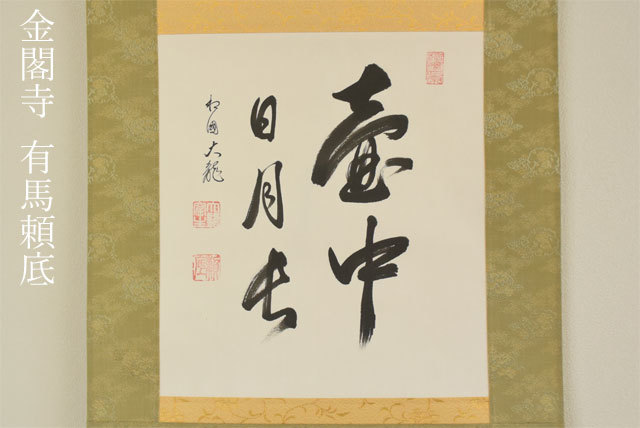 金閣寺 有馬頼底
壷中
日月長
相國大龍